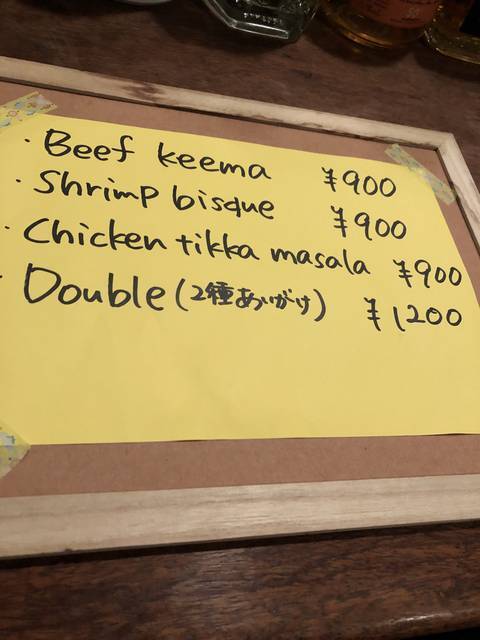 ・Beef keema ¥900
・Shrimp bisque ¥900
・Chicken tikka masala ¥900
・Double (2種あいがけ) ¥1200